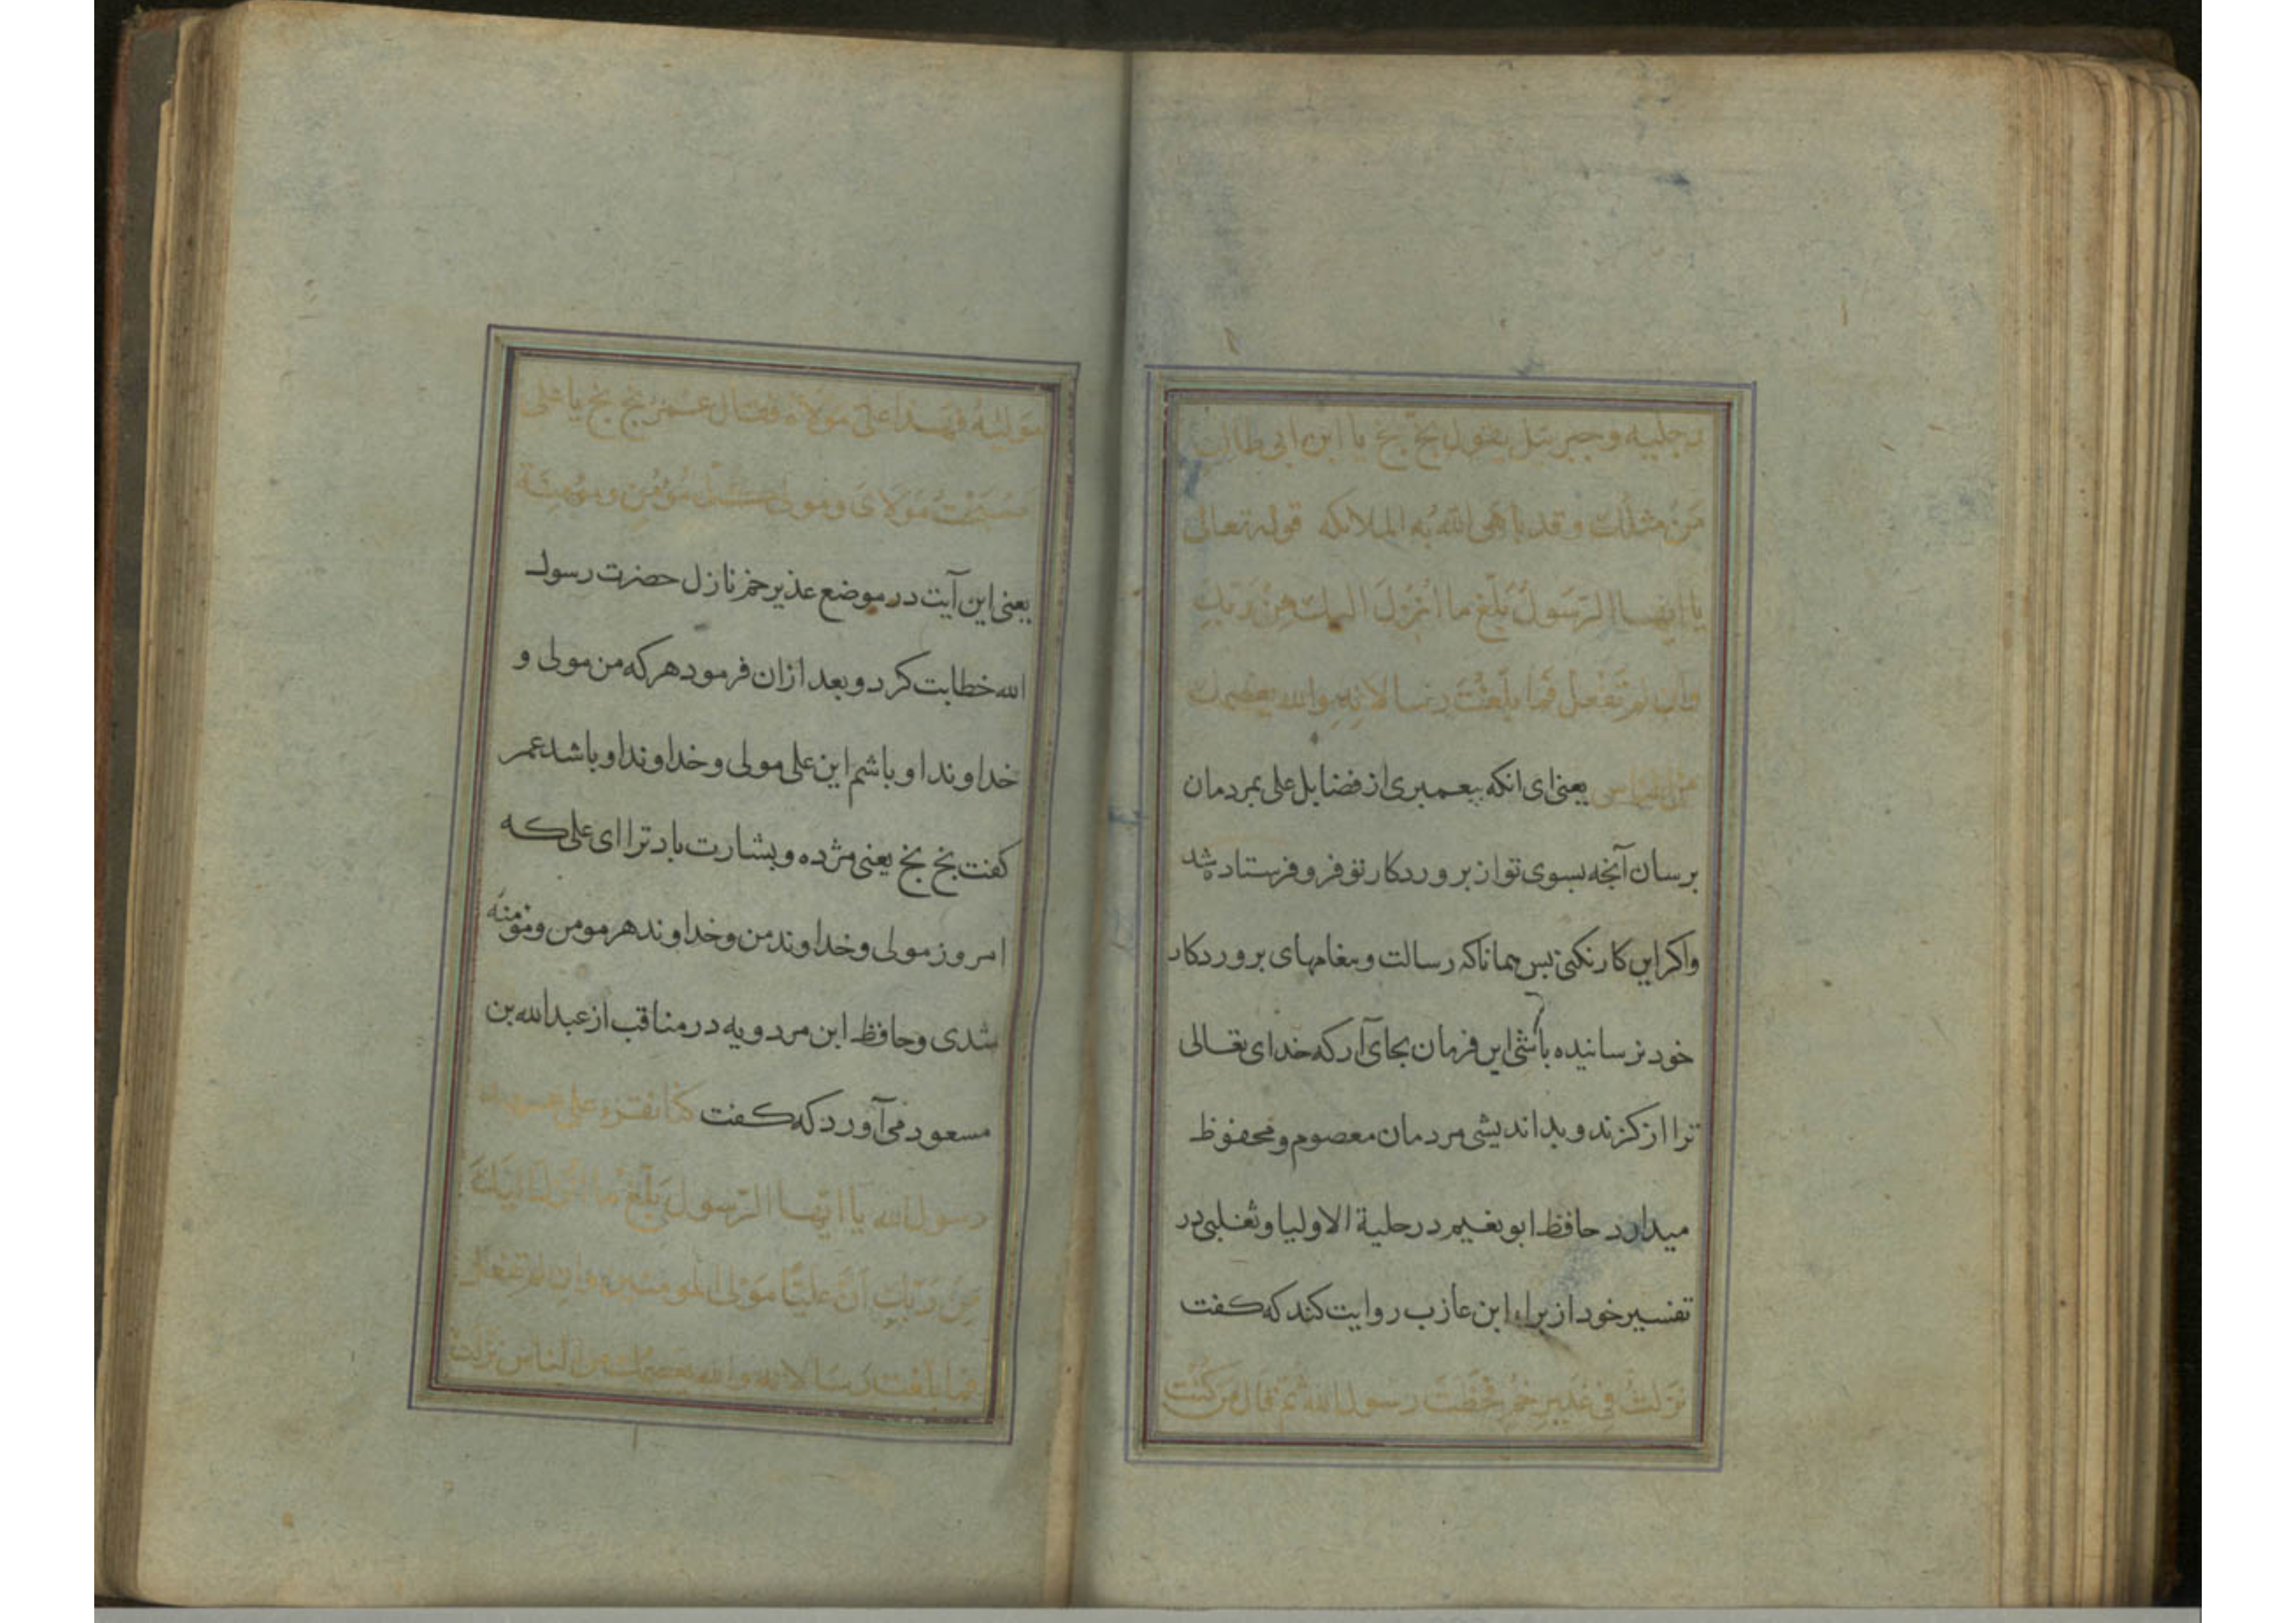 رجليه وجبرئيل يقول بخ بخ يا ابن ابى طالب
مَن مثلك وقد باهى الله به الملائكه قوله تعالى
يا ايها الرّسولُ بَلّغ ما اُنزِلَ اليك مِن ربّك
وان لم تَفْعل فما بلّغتَ رسالاته والله يعصمك
من الناس يعنى اى انكه پيغمبرى از فضايل على بمردمان
برسان آنچه بسوى تو از بروردكار تو فرو فرستاده شد
واكر اين كار نكنى پس همانا كه رسالت و پيغامهاى بروردكار
خود نرسانيده باشى اين فرمان بجاى آر كه خداى تعالى
ترا از كزند و بد انديشى مردمان معصوم و محفوظ
ميدارد حافظ ابو نعيم در حلية الاوليا و ثعلبى در
تفسير خود از براء ابن عازب روايت كند كه كفت
نزلت فى غدير خم فخطب رسول الله ثم قال من كنت
مَوليٰهُ فهذا على مولاه فقال عمر بخ بخ يا على
اصبحت مولاى ومولى كل مؤمن ومؤمنة
يعنى اين آيت در موضع غدير خم نازل حضرت رسول
الله خطابت كرد و بعد ازان فرمود هر كه من مولى و
خداوند او باشم اين على مولى و خداوند او باشد عمر
كفت بخ بخ يعنى مژده و بشارت باد ترا اى على كه
امروز مولى و خداوند من و خداوند هر مومن و مؤمنه
شدى وحافظ ابن مردويه در مناقب از عبدالله بن
مسعود مى آورد كه كفت كنا نقرء على عهد
رسول الله يا ايها الرّسول بلّغ ما انزل اليك
مِن رَبّك اَنّ عليّاً مَولى المومنين وان لم تفعل
فما بلغت رسالاته والله يعصمك من الناس نزلت